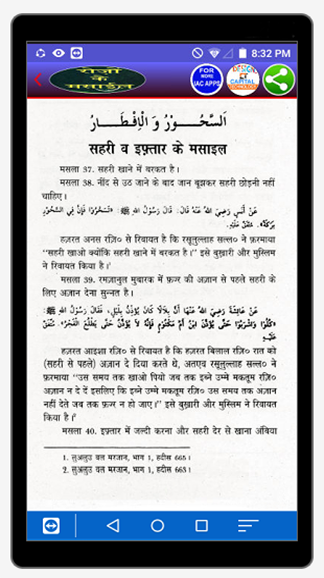 8:32 PM
रोज़ा के
मसाईल
FOR
MORE
IAC APPS
DESIGN
CAPITAL
اَلسُّحُوْرُ وَ الْاِفْطَارُ
सहरी व इफ़्तार के मसाइल
मसला 37. सहरी खाने में बरकत है।
मसला 38. नींद से उठ जाने के बाद जान बूझकर सहरी छोड़नी नहीं
चाहिए।
عَنْ أَنَسٍ رَضِيَ اللهُ عَنْهُ قَالَ: قَالَ رَسُولُ اللهِ ﷺ: «تَسَحَّرُوْا فَإِنَّ فِي السَّحُوْرِ
بَرَكَةً». مُتَّفَقٌ عَلَيْهِ.
हज़रत अनस रज़ि० से रिवायत है कि रसूलुल्लाह सल्ल० ने फ़रमाया
''सहरी खाओ क्योंकि सहरी खाने में बरकत है।'' इसे बुख़ारी और मुस्लिम
ने रिवायत किया है।¹
मसला 39. रमज़ानुल मुबारक में फ़ज्र की अज़ान से पहले सहरी के
लिए अज़ान देना सुन्नत है।
عَنْ عَائِشَةَ رَضِيَ اللهُ عَنْهَا أَنَّ بِلَالًا كَانَ يُؤَذِّنُ بِلَيْلٍ، فَقَالَ رَسُولُ اللهِ ﷺ:
«كُلُوْا وَاشْرَبُوْا حَتَّى يُؤَذِّنَ ابْنُ أُمِّ مَكْتُوْمٍ فَإِنَّهُ لَا يُؤَذِّنُ حَتَّى يَطْلُعَ الْفَجْرُ». مُتَّفَقٌ
عَلَيْهِ.
हज़रत आइशा रज़ि० से रिवायत है कि हज़रत बिलाल रज़ि० रात को
(सहरी से पहले) अज़ान दे दिया करते थे, अतएव रसूलुल्लाह सल्ल० ने
फ़रमाया ''उस समय तक खाओ पियो जब तक इब्ने उम्मे मकतूम रज़ि०
अज़ान न दे दें इसलिए कि इब्ने उम्मे मकतूम रज़ि० उस समय तक अज़ान
नहीं देते जब तक फ़ज्र न हो जाए।'' इसे बुख़ारी और मुस्लिम ने रिवायत
किया है।²
मसला 40. इफ़्तार में जल्दी करना और सहरी देर से खाना अंबिया
1. लुअलुउ वल मरजान, भाग 1, हदीस 665।
2. लुअलुउ वल मरजान, भाग 1, हदीस 663।